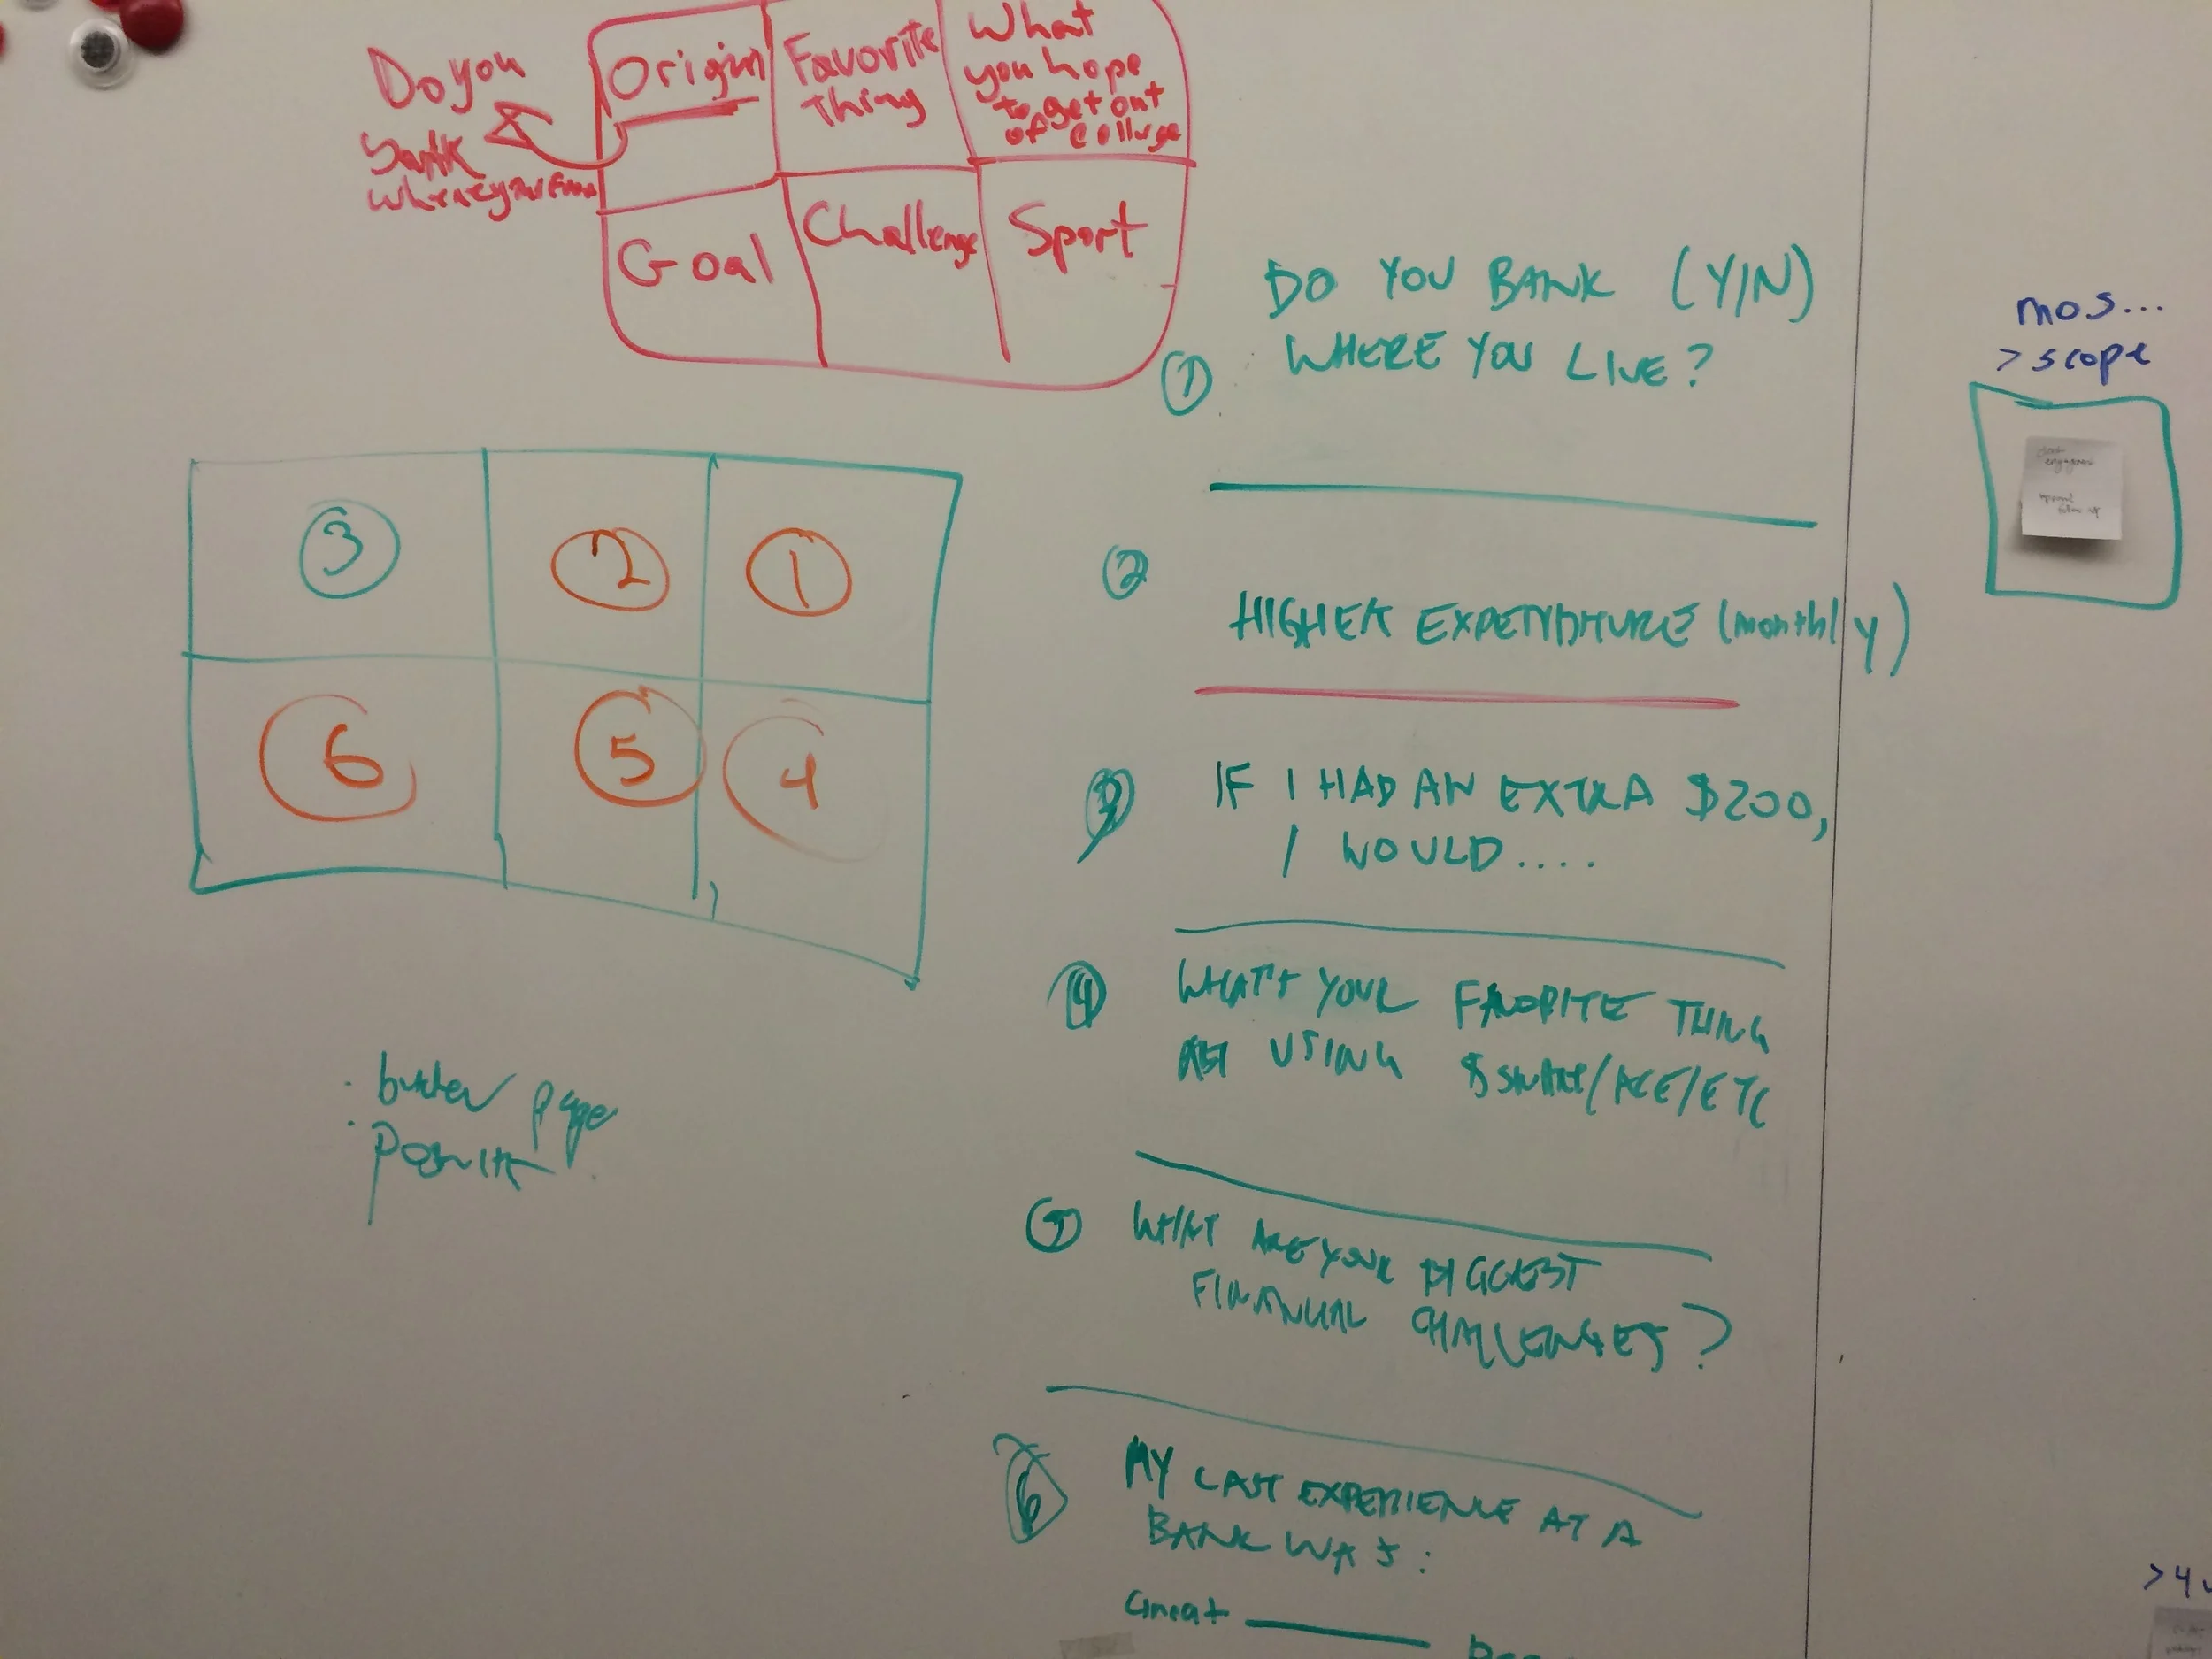 Do you
bank
where you're from
Origin
Favorite
Thing
What
you hope
to get out
of college
Goal
Challenge
Sport
3
2
1
6
5
4
page
① DO YOU BANK (Y/N)
WHERE YOU LIVE?
②
HIGHER EXPENDITURE (monthly)
3 IF I HAD AN EXTRA $200,
I WOULD....
4 WHAT'S YOUR FAVORITE THING
USING $ SHARE/ACE/ETC
5 WHAT ARE YOUR BIGGEST
FINANCIAL CHALLENGES?
6 MY LAST EXPERIENCE AT A
BANK WAS:
Great
mos...
> scope
>4